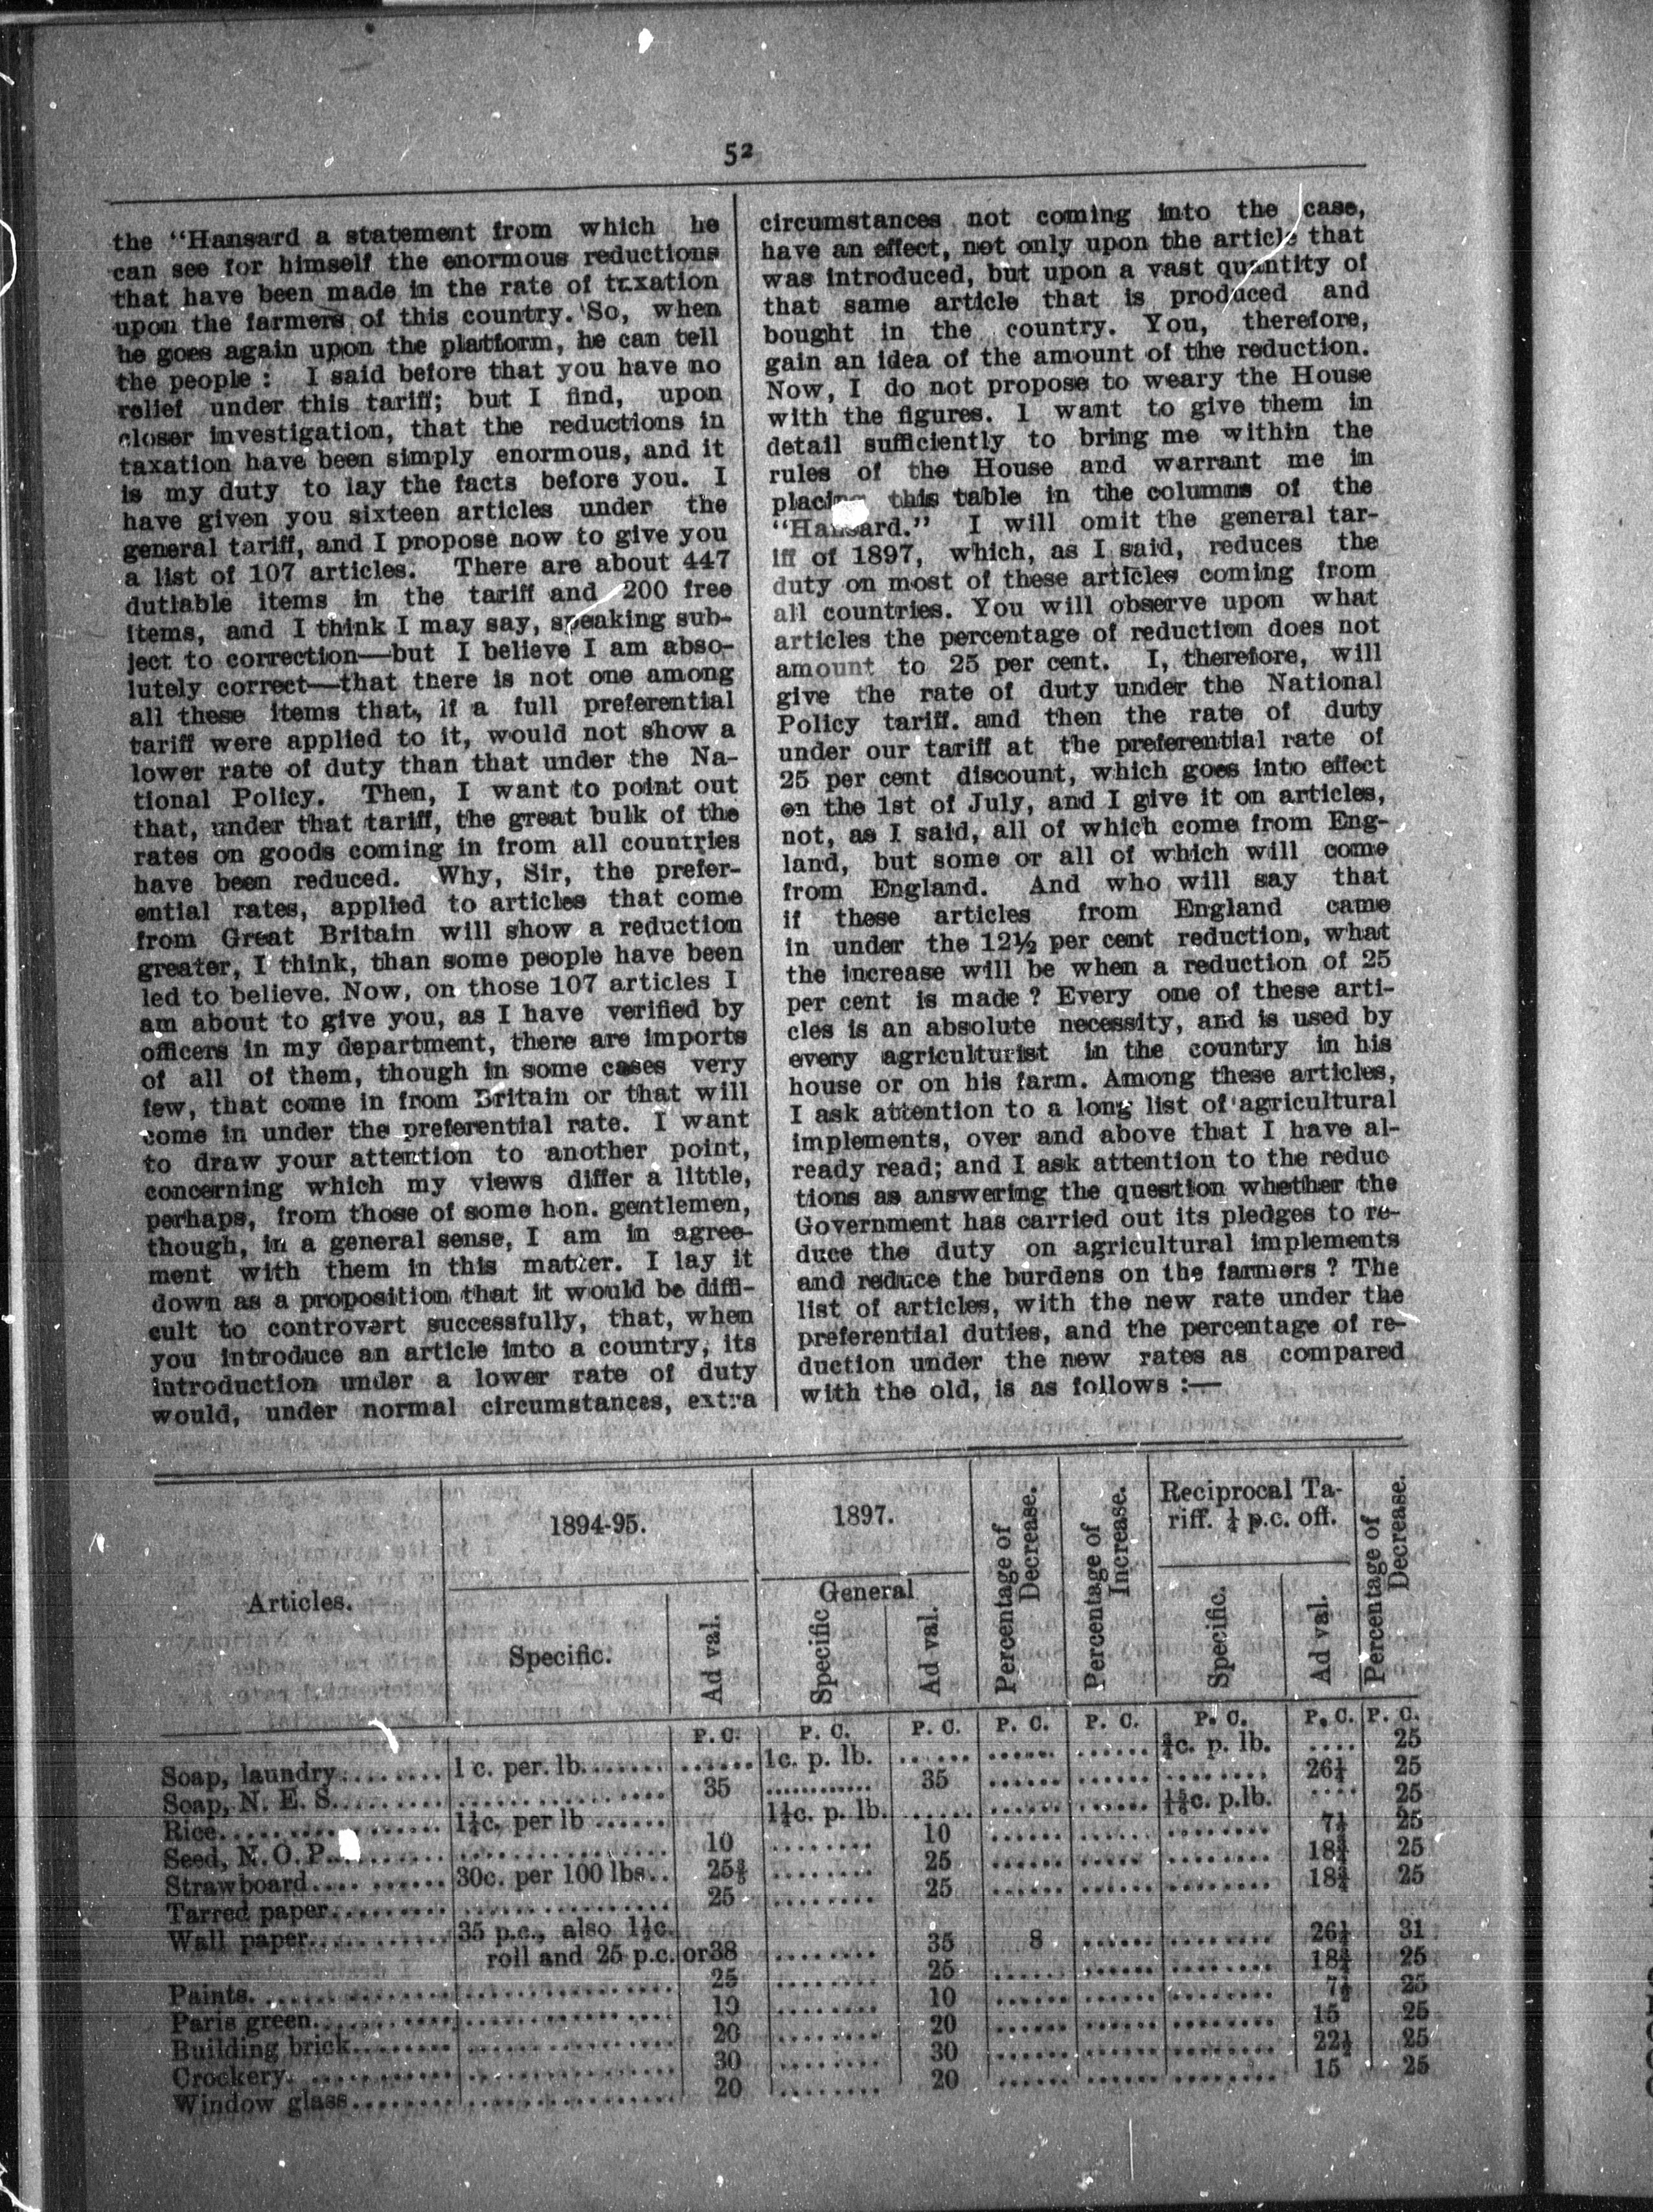 52
the "Hansard a statement from which he
can see for himself the enormous reductions
that have been made in the rate of taxation
upon the farmers of this country. So, when
he goes again upon the platform, he can tell
the people : I said before that you have no
relief under this tariff; but I find, upon
closer investigation, that the reductions in
taxation have been simply enormous, and it
is my duty to lay the facts before you. I
have given you sixteen articles under the
general tariff, and I propose now to give you
a list of 107 articles. There are about 447
dutiable items in the tariff and 200 free
items, and I think I may say, speaking sub-
ject to correction—but I believe I am abso-
lutely correct—that there is not one among
all these items that, if a full preferential
tariff were applied to it, would not show a
lower rate of duty than that under the Na-
tional Policy. Then, I want to point out
that, under that tariff, the great bulk of the
rates on goods coming in from all countries
have been reduced. Why, Sir, the prefer-
ential rates, applied to articles that come
from Great Britain will show a reduction
greater, I think, than some people have been
led to believe. Now, on those 107 articles I
am about to give you, as I have verified by
officers in my department, there are imports
of all of them, though in some cases very
few, that come in from Britain or that will
come in under the preferential rate. I want
to draw your attention to another point,
concerning which my views differ a little,
perhaps, from those of some hon. gentlemen,
though, in a general sense, I am in agree-
ment with them in this matter. I lay it
down as a proposition that it would be diffi-
cult to controvert successfully, that, when
you introduce an article into a country, its
introduction under a lower rate of duty
would, under normal circumstances, extra
circumstances not coming into the case,
have an effect, not only upon the article that
was introduced, but upon a vast quantity of
that same article that is produced and
bought in the country. You, therefore,
gain an idea of the amount of the reduction.
Now, I do not propose to weary the House
with the figures. I want to give them in
detail sufficiently to bring me within the
rules of the House and warrant me in
placing this table in the columns of the
"Hansard." I will omit the general tar-
iff of 1897, which, as I said, reduces the
duty on most of these articles coming from
all countries. You will observe upon what
articles the percentage of reduction does not
amount to 25 per cent. I, therefore, will
give the rate of duty under the National
Policy tariff. and then the rate of duty
under our tariff at the preferential rate of
25 per cent discount, which goes into effect
on the 1st of July, and I give it on articles,
not, as I said, all of which come from Eng-
land, but some or all of which will come
from England. And who will say that
if these articles from England came
in under the 12½ per cent reduction, what
the increase will be when a reduction of 25
per cent is made ? Every one of these arti-
cles is an absolute necessity, and is used by
every agriculturist in the country in his
house or on his farm. Among these articles,
I ask attention to a long list of agricultural
implements, over and above that I have al-
ready read; and I ask attention to the reduc
tions as answering the question whether the
Government has carried out its pledges to re-
duce the duty on agricultural implements
and reduce the burdens on the farmers ? The
list of articles, with the new rate under the
preferential duties, and the percentage of re-
duction under the new rates as compared
with the old, is as follows :—
Articles. 1894-95. 1897. Percentage of Decrease. Percentage of Increase. Reciprocal Ta-
riff. ¼ p.c. off. Percentage of Decrease.
General
Specific. Ad val. Specific Ad val. Specific. Ad val.
P. C. P. C. P. C. P. C. P. C. P. C. P. C. P. C.
Soap, laundry........ 1 c. per. lb....... ...... 1c. p. lb. ...... ...... ...... ¾c. p. lb. .... 25
Soap, N. E. S......... ................ 35 ............ 35 ...... ...... ......... 26¼ 25
Rice................ 1¼c. per lb ...... 1¼c. p. lb. ...... ...... ...... c. p.lb. .... 25
Seed, N. O. P......... ................ 10 ......... 10 ...... ...... ......... 7½ 25
Strawboard.... ...... 30c. per 100 lbs.. 25 ......... 25 ...... ...... ......... 18¾ 25
Tarred paper......... ................ 25 ......... 25 ...... ...... ......... 18¾ 25
Wall paper............ 35 p.c., also 1½c.
roll and 25 p.c. or 38 ......... 35 8 ...... ......... 26¼ 31
Paints............... ................ 25 ......... 25 ...... ...... ......... 18¾ 25
Paris green........... ................ 10 ......... 10 ...... ...... ......... 7½ 25
Building brick......... ................ 20 ......... 20 ...... ...... ......... 15 25
Crockery............. ................ 30 ......... 30 ...... ...... ......... 22½ 25
Window glass......... ................ 20 ......... 20 ...... ...... ......... 15 25